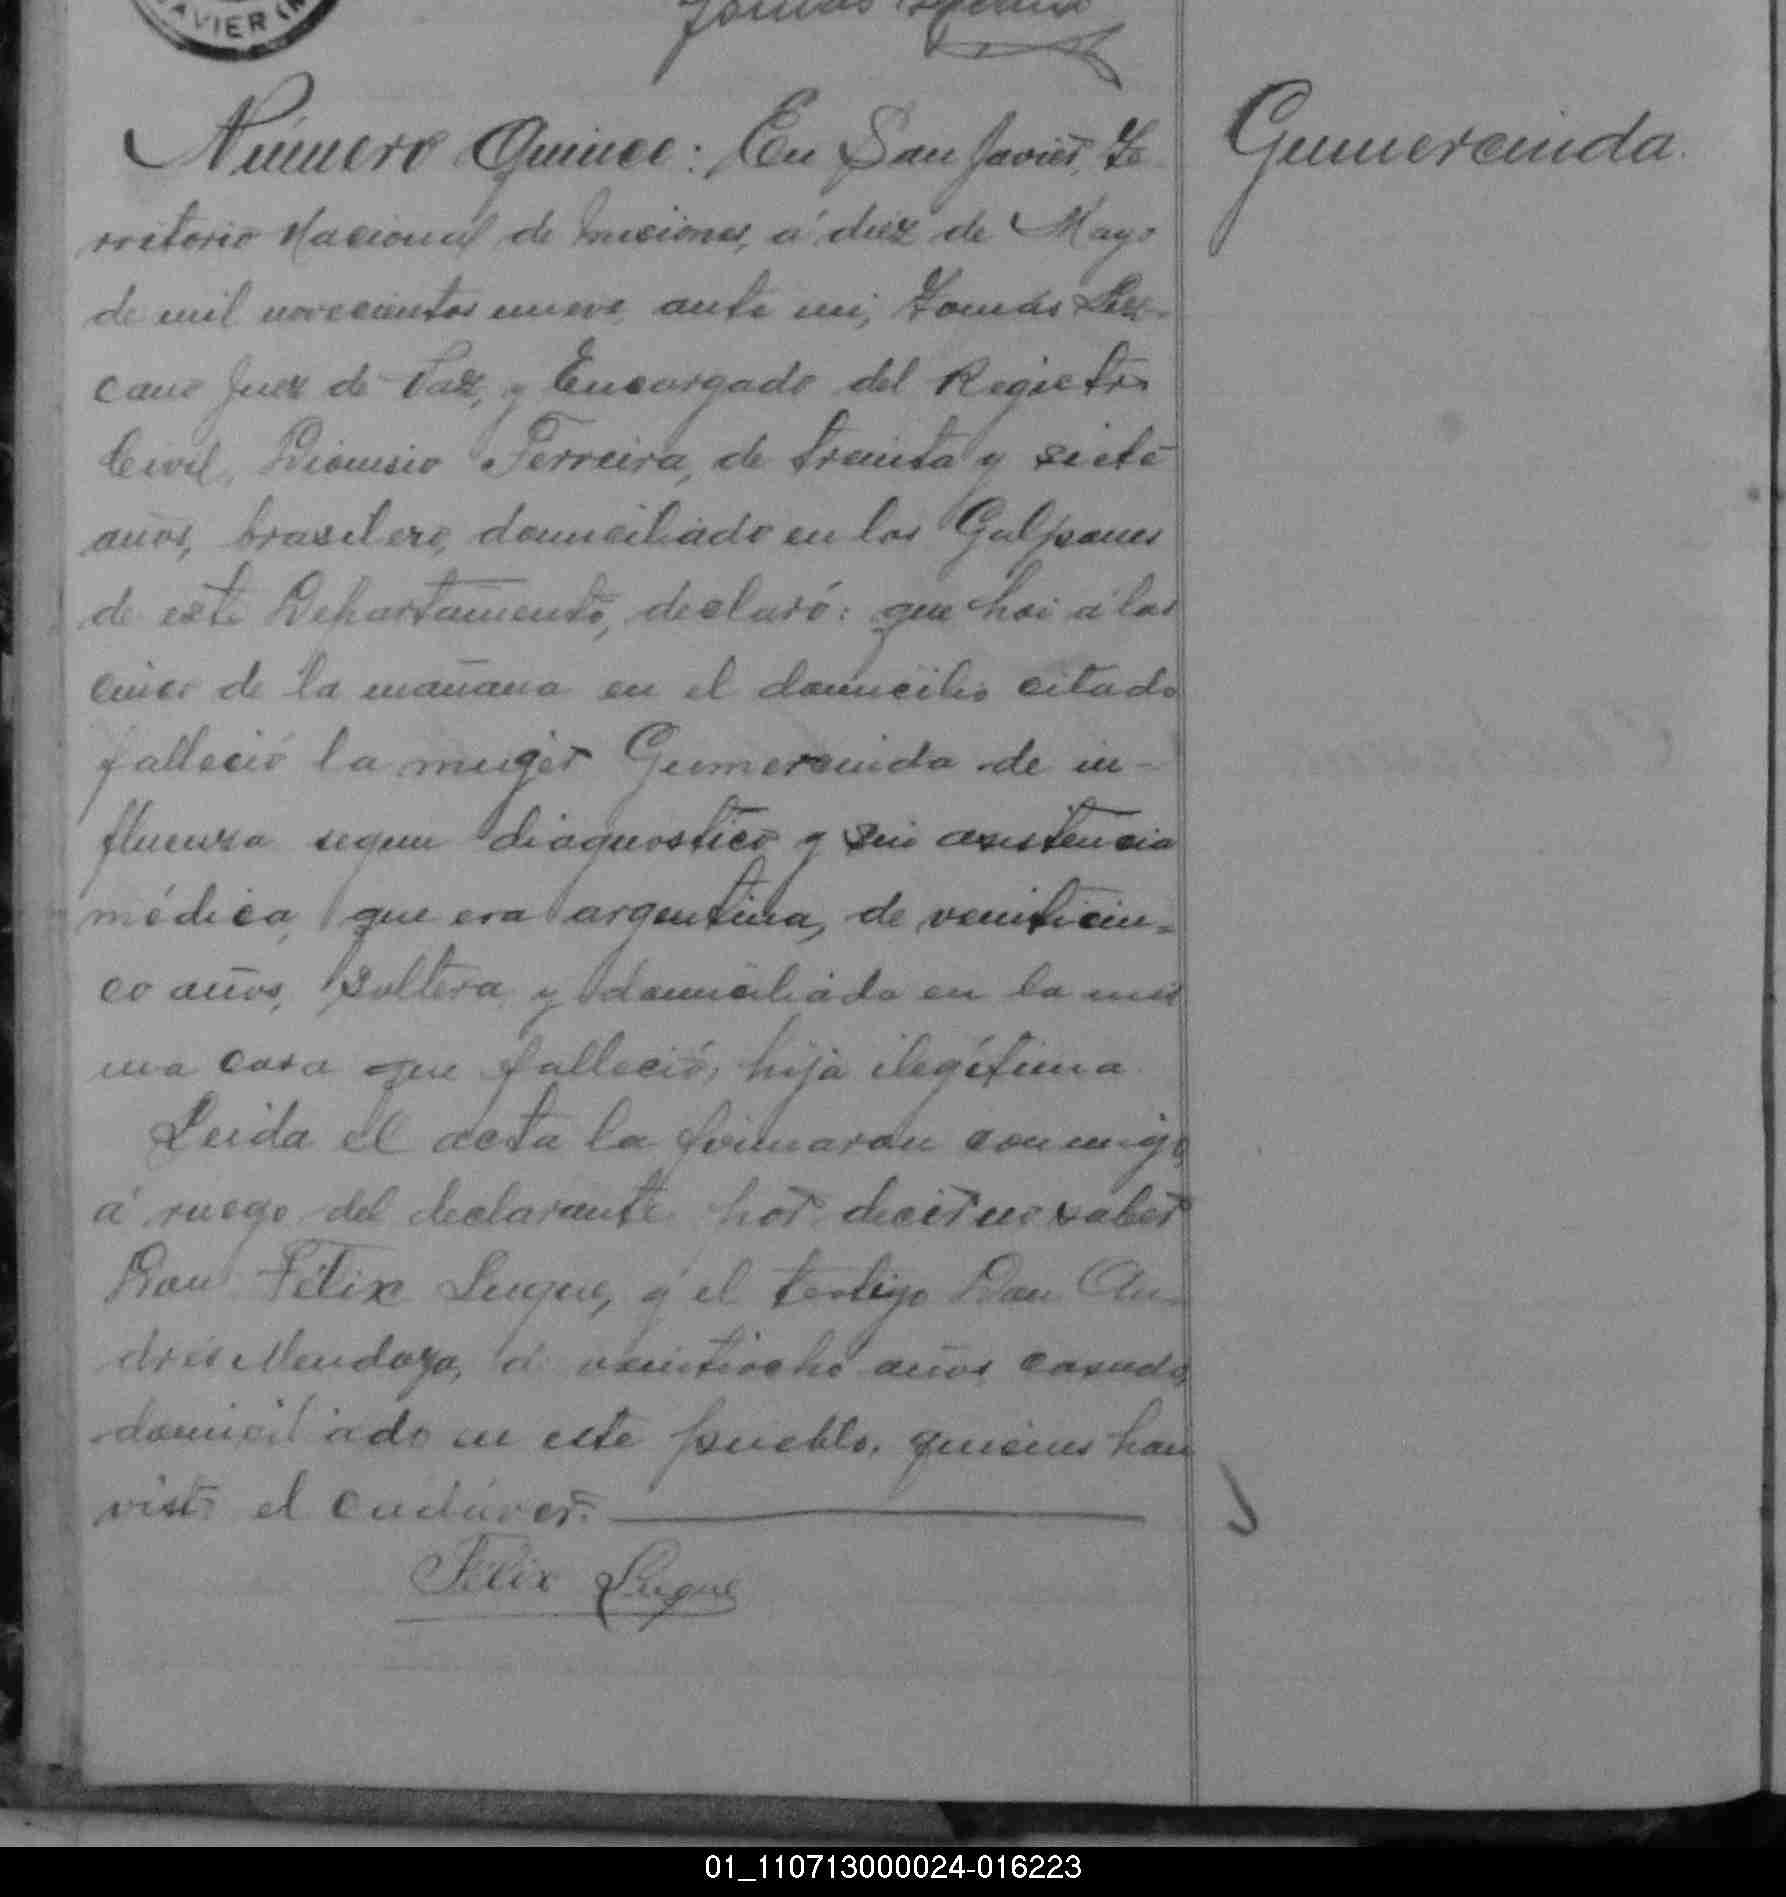 JAVIER (M
Tomás Lescano
Número Quince: En San Javier, Te
Gumercinda.
rritorio Nacional de Misiones, á diez de Mayo
de mil novecientos nueve, ante mi, Tomás Les-
cano Juez de Paz, y Encargado del Registro
Civil, Dionisio Ferreira, de treinta y siete
años, brasilero, domiciliado en los Galpones
de este Departamento, declaró: que hoi a las
cinco de la mañana en el domicilio citado
falleció la muger Gumercinda de in-
fluenza segun diagnostico y sin asistencia
médica, que era argentina, de veinticin-
co años, soltera y domiciliada en la mis
ma casa que falleció, hija ilegítima.
Leida el acta la firmaron conmigo,
á ruego del declarante por decir no saber
Don Félix Luque, y el testigo Don An-
drés Mendoza, de veintiocho años casado,
domiciliado en este pueblo, quienes han
visto el cadáver.
Félix Luque
01_110713000024-016223